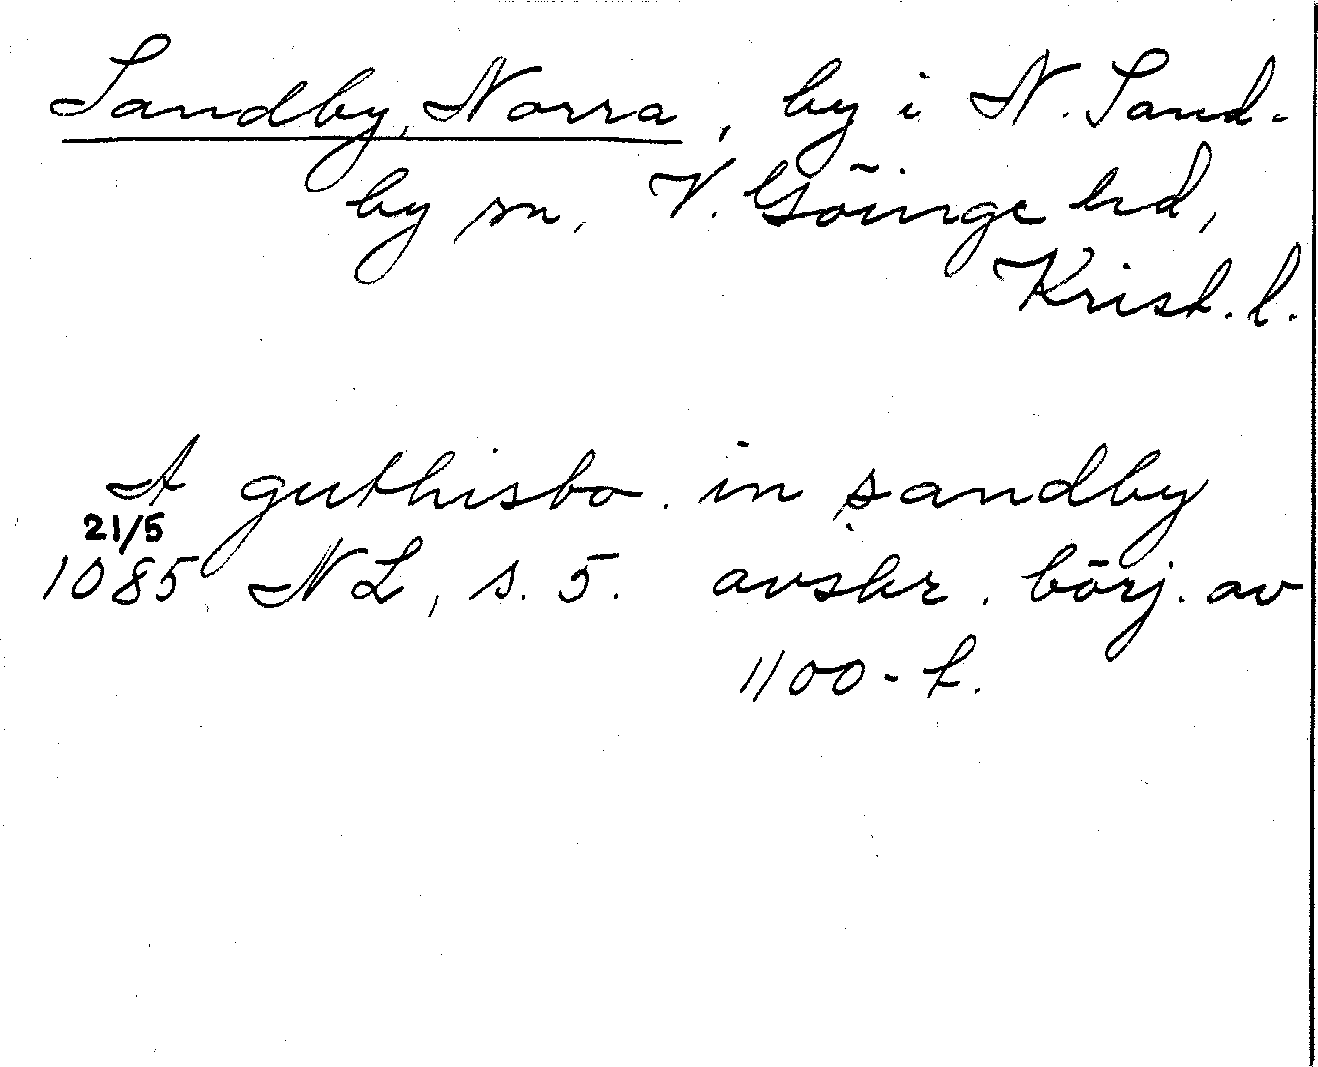 Sandby, Norra, by i N. Sand-
by sn, V. Göinge hd,
Krist. l.
A guthisbo. in sandby
21/5
1085 NL, s. 5. avskr. börj. av
1100-t.